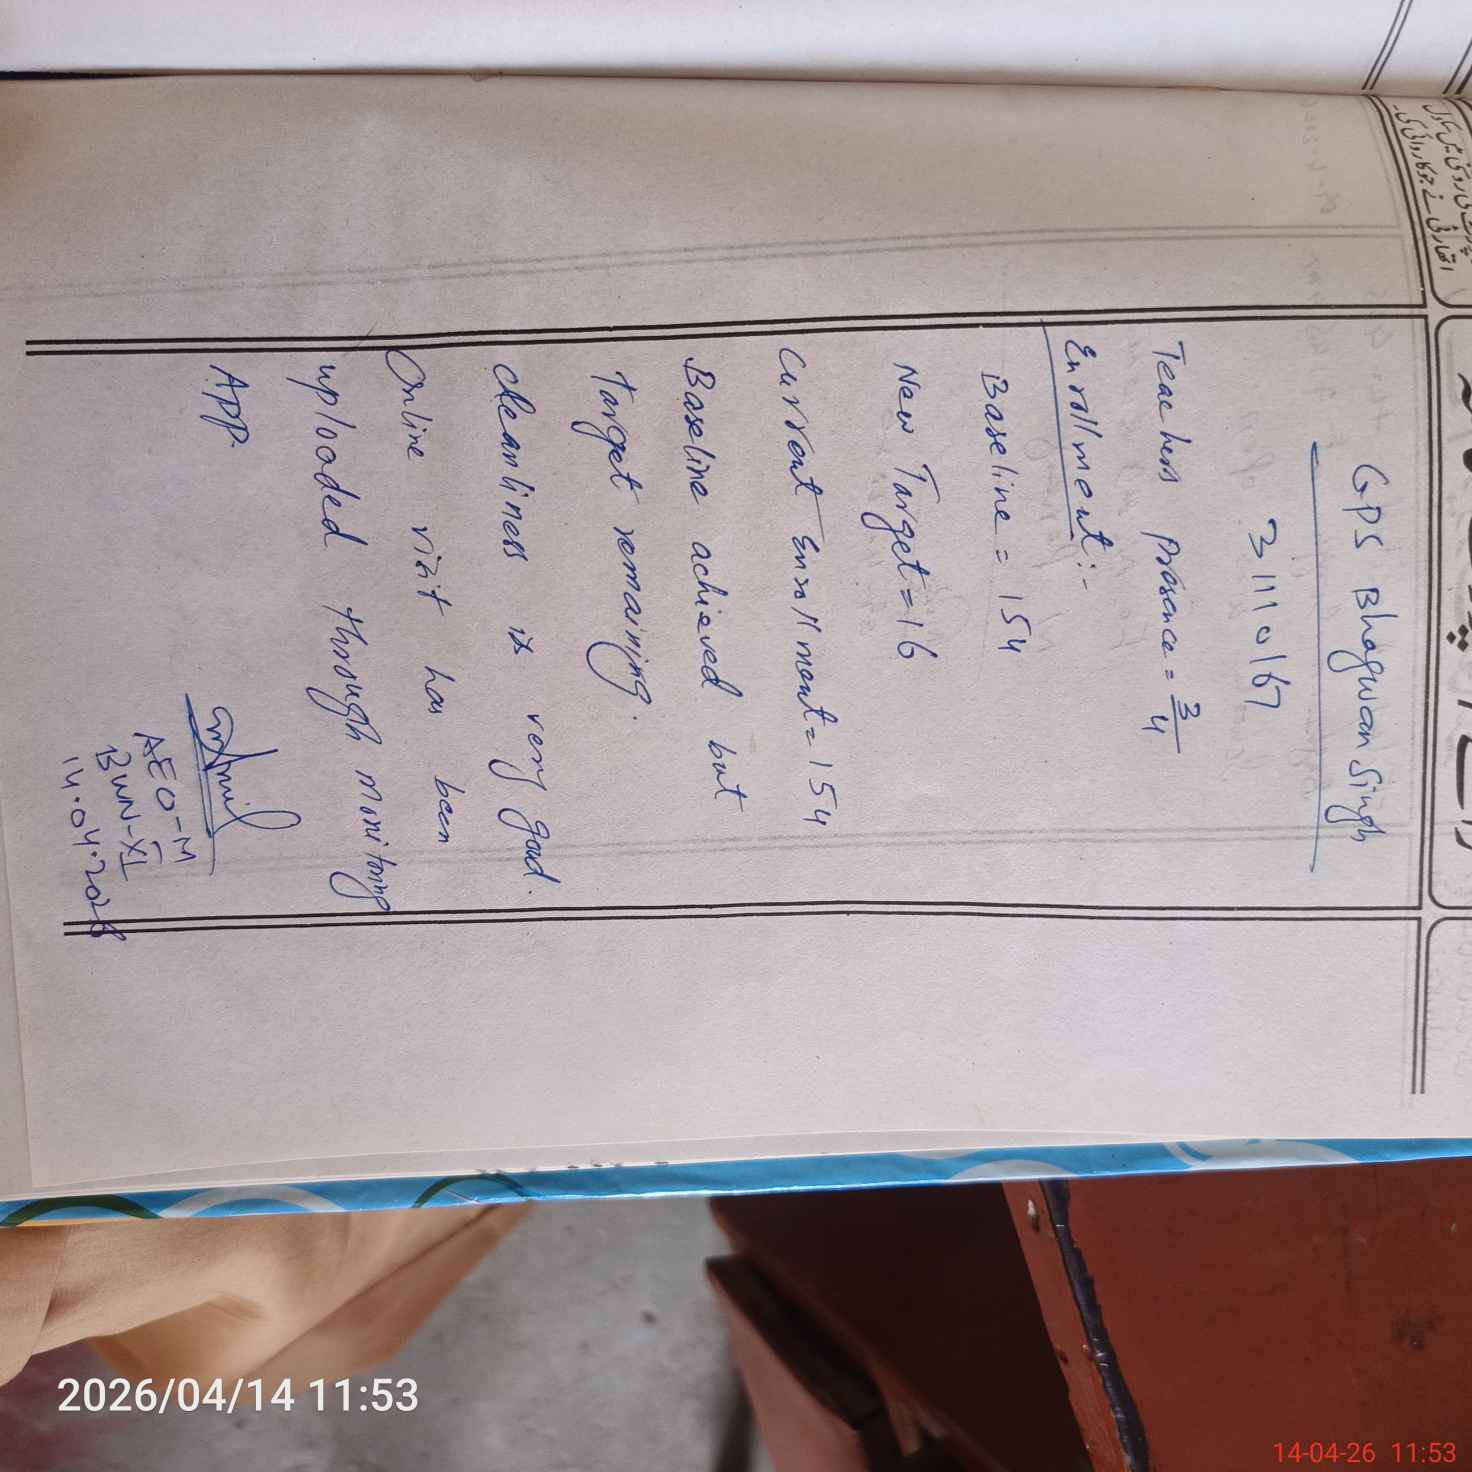 GPS Bhagwan Singh
31110167
Teachers presence = 3/4
Enrollment:-
Baseline = 154
New Target = 16
Current Enrollment = 154
Baseline achieved but
Target remaining.
Cleanliness is very good.
Online visit has been
uploaded through monitoring
App.
AEO-M
BWN-XI
14.04.2026
2026/04/14 11:53
14-04-26 11:53